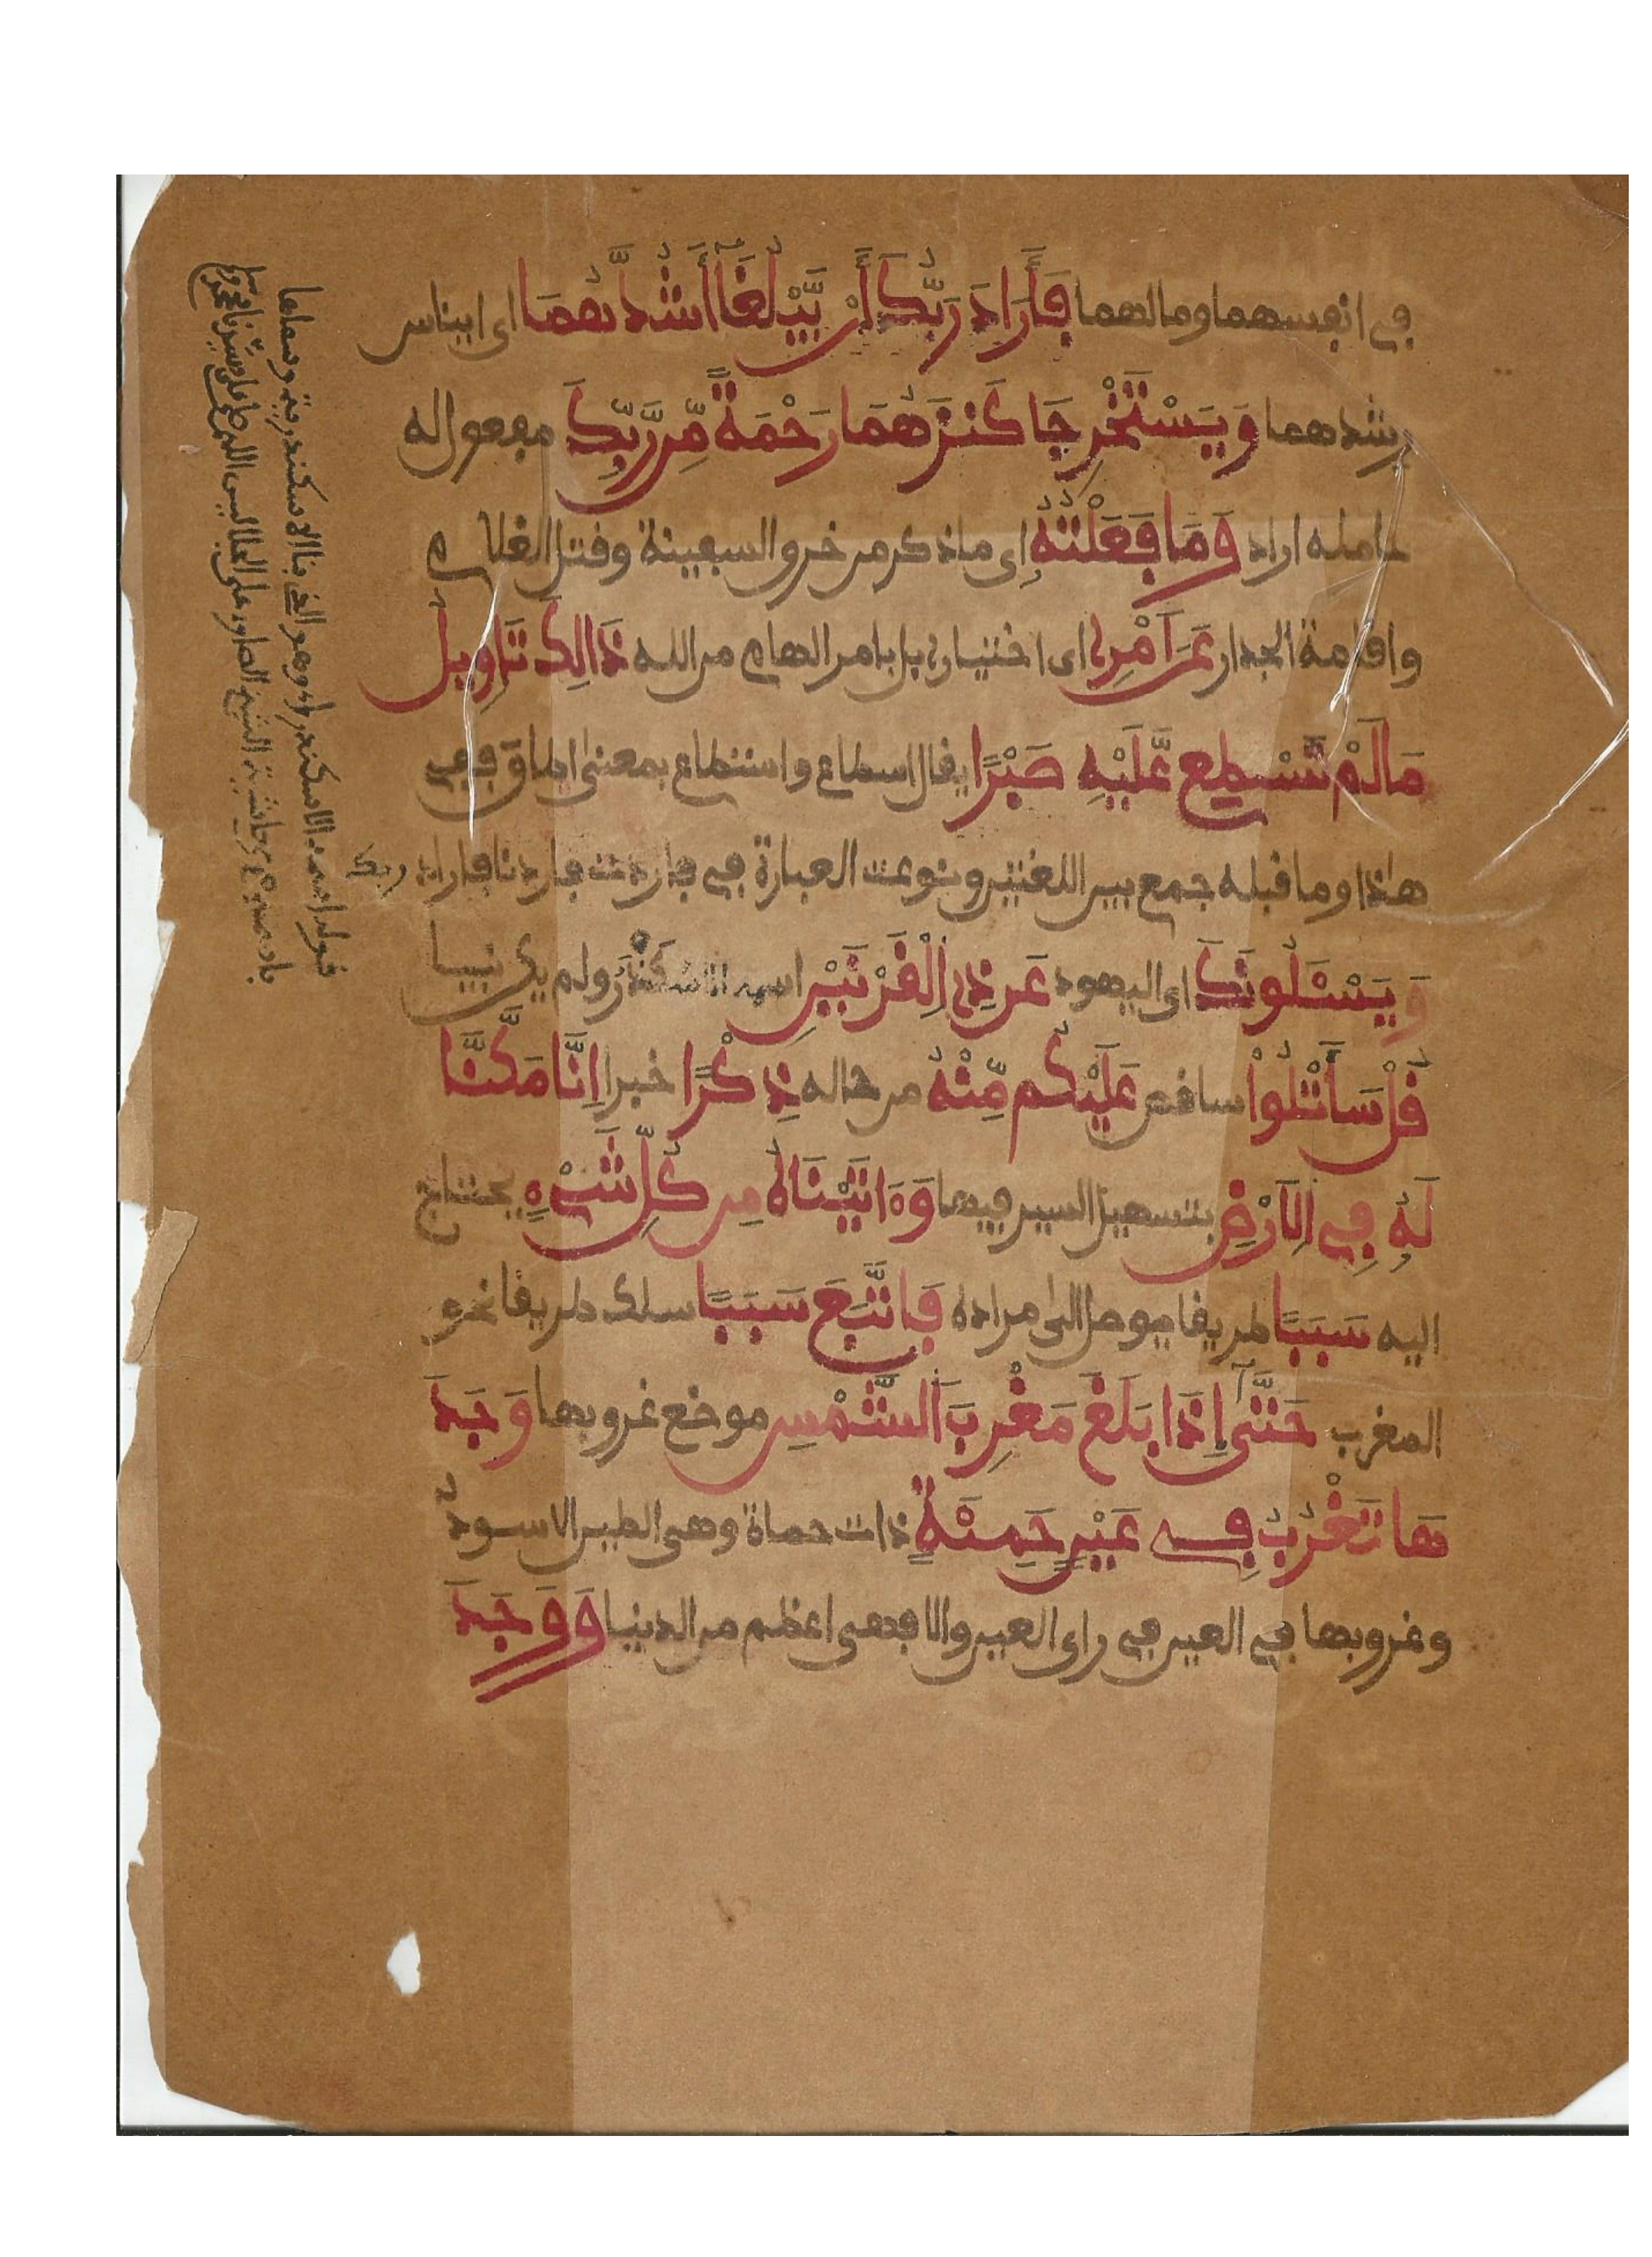 في انفسهما ومالهما فَأَرَادَ رَبُّكَ أَنْ يَّبْلُغَآ أَشُدَّهُمَا اى ايناس
رشدهما وَيَسْتَخْرِجَا كَنزَهُمَا رَحْمَةً مِّن رَّبِّكَ مفعول له
عامله اراد وَمَا فَعَلْتُهُ اى ما ذكر من خرق السفينة وقتل الغلام
واقامة الجدار عَنَ اَمْرِى اى اختيارى بل بامر الهام من الله ذَالِكَ تَاوِيلُ
مَا لَمْ تَسْطِع عَّلَيْهِ صَبْرًا يقال اسطاع واستطاع بمعنى اطاق ففى
هاذا وما قبله جمع بين اللغتين ونوعت العبارة فى فاردت فاردنا فاراد ربك
وَيَسْـَٔلُونَكَ اى اليهود عَن ذِى اِلْقَرْنَيْنِ اسمه الاسكندر ولم يكن نبيا
قُلْ سَأَتْلُواْ ساقص عَلَيْكُم مِّنْهُ من حاله ذِكْرًا خبرا اِنَّا مَكَّنَّا
لَهُ فِى اِلاَرْضِ بتسهيل السير فيها وَءَاتَيْنَاهُ مِن كُلِّ شَىْءٍ يحتاج
اليه سَبَبًا طريقا يوصل الى مراده فَاتَّبَعَ سَبَبًا سلك طريقا نحو
المغرب حَتَّىٰٓ إِذَا بَلَغَ مَغْرِبَ اَلشَّمْسِ موضع غروبها وَجَدَ
هَا تَغْرُبُ فِى عَيْنٍ حَمِئَةٍ ذات حماة وهى الطين الاسود
وغروبها فى العين فى راى العين والا فهى اعظم من الدنيا وَوَجَدَ
قوله اسمه الاسكندر وهو الذى بنا الاسكندرية وسماها
باسمه حاشية الشيخ الصاوى على الجلالين